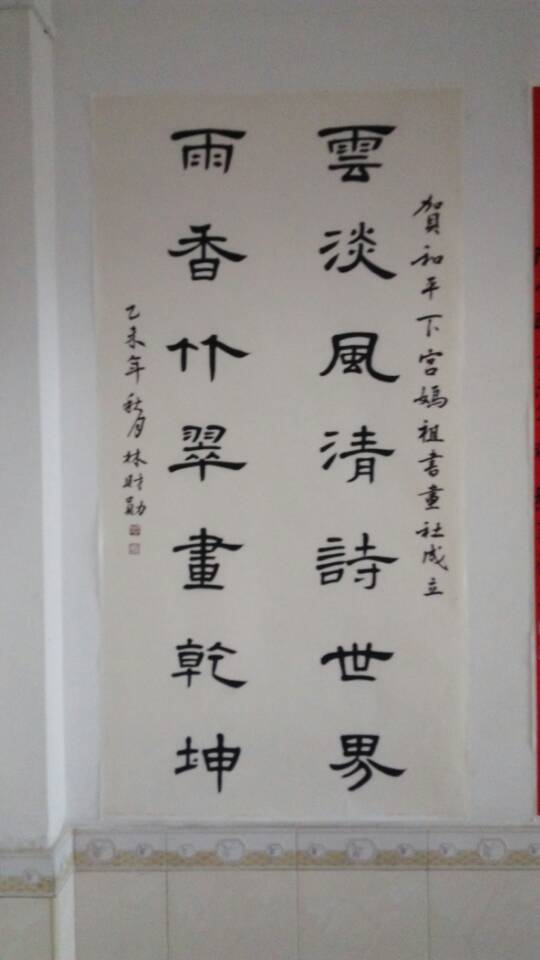 賀和平下宮媽祖書畫社成立
雲淡風清詩世界
雨香竹翠畫乾坤
乙未年秋月林財勛